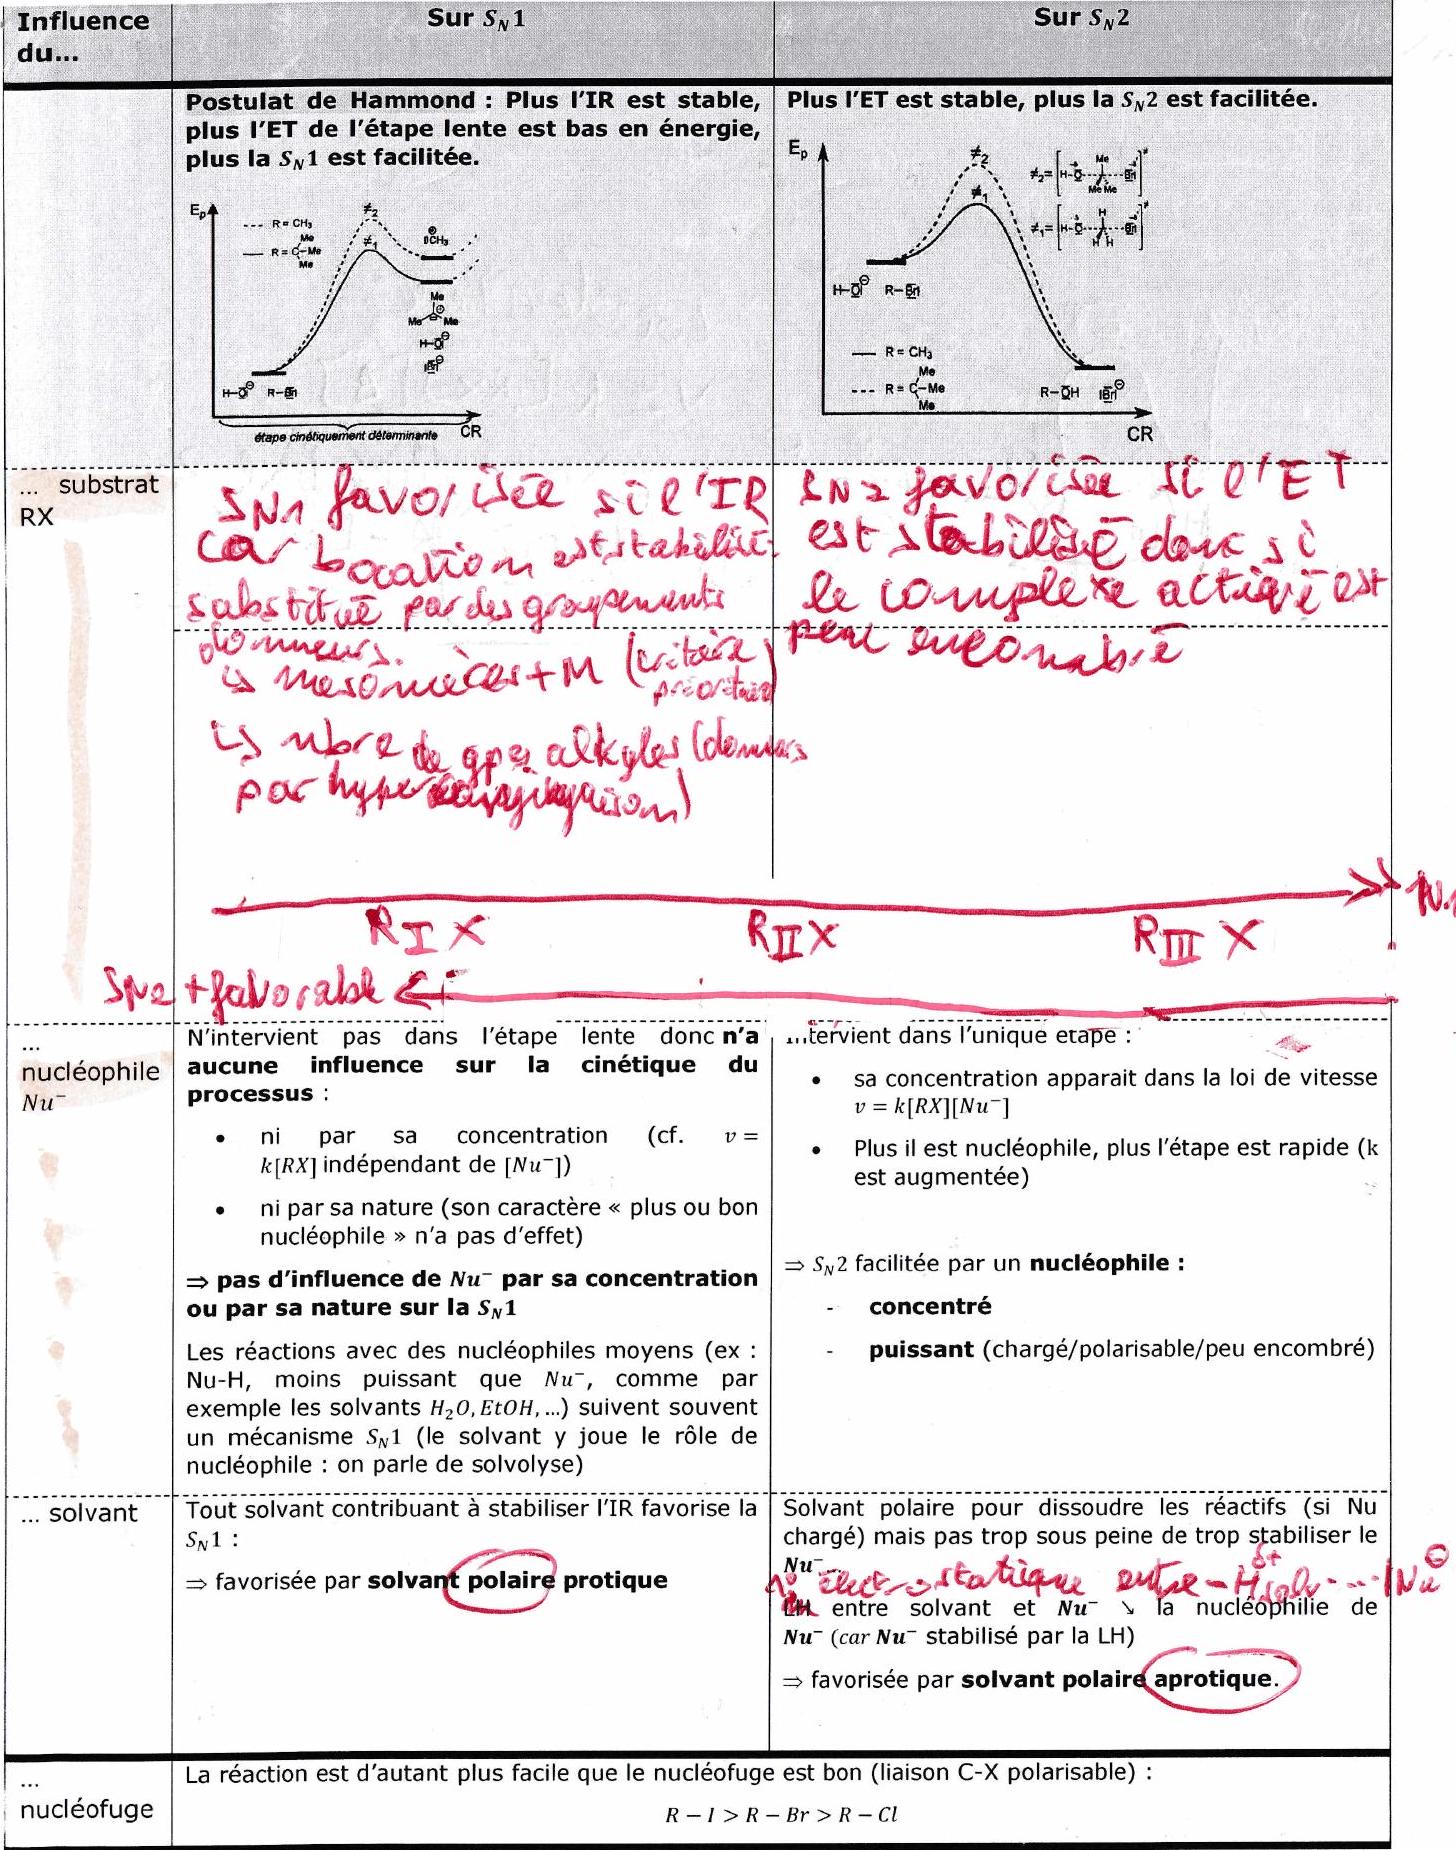 Influence
du...
Sur S_N1
Sur S_N2
Postulat de Hammond : Plus l'IR est stable,
plus l'ET de l'étape lente est bas en énergie,
plus la S_N1 est facilitée.
E_p
--- R = CH₃
— R = C–Me
Me
Me
≠₂
≠₁
⊕
CH₃
Me
Me
Me
H–O⊖
Br⊖
H–O⊖ R–Br
étape cinétiquement déterminante
CR
Plus l'ET est stable, plus la S_N2 est facilitée.
E_p
≠₂
≠₁
≠₂= [H-O----Br]≠
Me
Me Me
≠₁= [H-O----Br]≠
H
H H
H–O⊖ R–Br
— R = CH₃
--- R = C–Me
Me
Me
R–OH Br⊖
CR
... substrat
RX
SN1 favorisée si l'IR
car bocation est stabilisé
substitué par des groupements
donneurs.
↳ mésomères +M (critère
prioritaire)
↳ nbre de gpes alkyles (donneurs
par hyperconjugaison)
SN2 favorisée si l'ET
est stabilisé donc si
le complexe activé est
peu encombré
N1
R_I X R_II X R_III X
SN2 + favorable
...
nucléophile
Nu⁻
N'intervient pas dans l'étape lente donc n'a
aucune influence sur la cinétique du
processus :
• ni par sa concentration (cf. v =
k[RX] indépendant de [Nu⁻])
• ni par sa nature (son caractère « plus ou bon
nucléophile » n'a pas d'effet)
⇒ pas d'influence de Nu⁻ par sa concentration
ou par sa nature sur la S_N1
Les réactions avec des nucléophiles moyens (ex :
Nu-H, moins puissant que Nu⁻, comme par
exemple les solvants H₂O, EtOH, ...) suivent souvent
un mécanisme S_N1 (le solvant y joue le rôle de
nucléophile : on parle de solvolyse)
Intervient dans l'unique etape :
• sa concentration apparait dans la loi de vitesse
v = k[RX][Nu⁻]
• Plus il est nucléophile, plus l'étape est rapide (k
est augmentée)
⇒ S_N2 facilitée par un nucléophile :
- concentré
- puissant (chargé/polarisable/peu encombré)
... solvant
Tout solvant contribuant à stabiliser l'IR favorise la
S_N1 :
⇒ favorisée par solvant polaire protique
Solvant polaire pour dissoudre les réactifs (si Nu
chargé) mais pas trop sous peine de trop stabiliser le
Nu⁻...
électrostatique entre - H_solv^δ+ ---- |Nu⊖
LH entre solvant et Nu⁻ ↘ la nucléophilie de
Nu⁻ (car Nu⁻ stabilisé par la LH)
⇒ favorisée par solvant polaire aprotique.
...
nucléofuge
La réaction est d'autant plus facile que le nucléofuge est bon (liaison C-X polarisable) :
R – I > R – Br > R – Cl